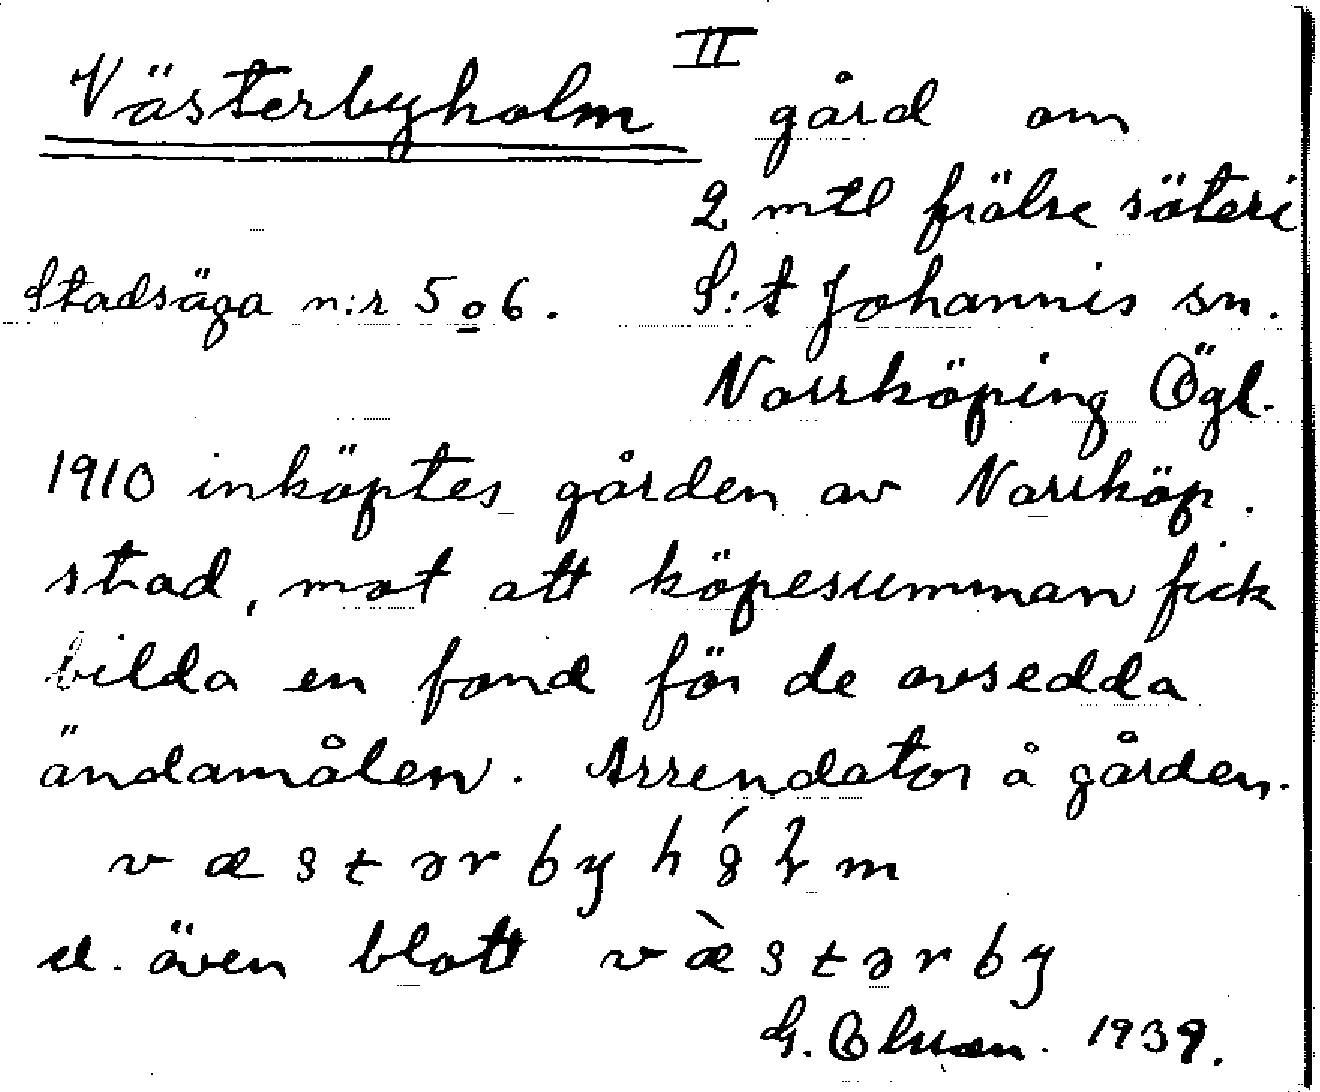 II
Västerbyholm gård om
2 mtl frälse säteri
Stadsäga n:r 5 o 6. S:t Johannis sn.
Norrköping Ögl.
1910 inköptes gården av Norrköp.
stad, mot att köpesumman fick
bilda en fond för de avsedda
ändamålen. Arrendator å gården.
væstərby
el. även blott væ̀stərby
G. 1939.